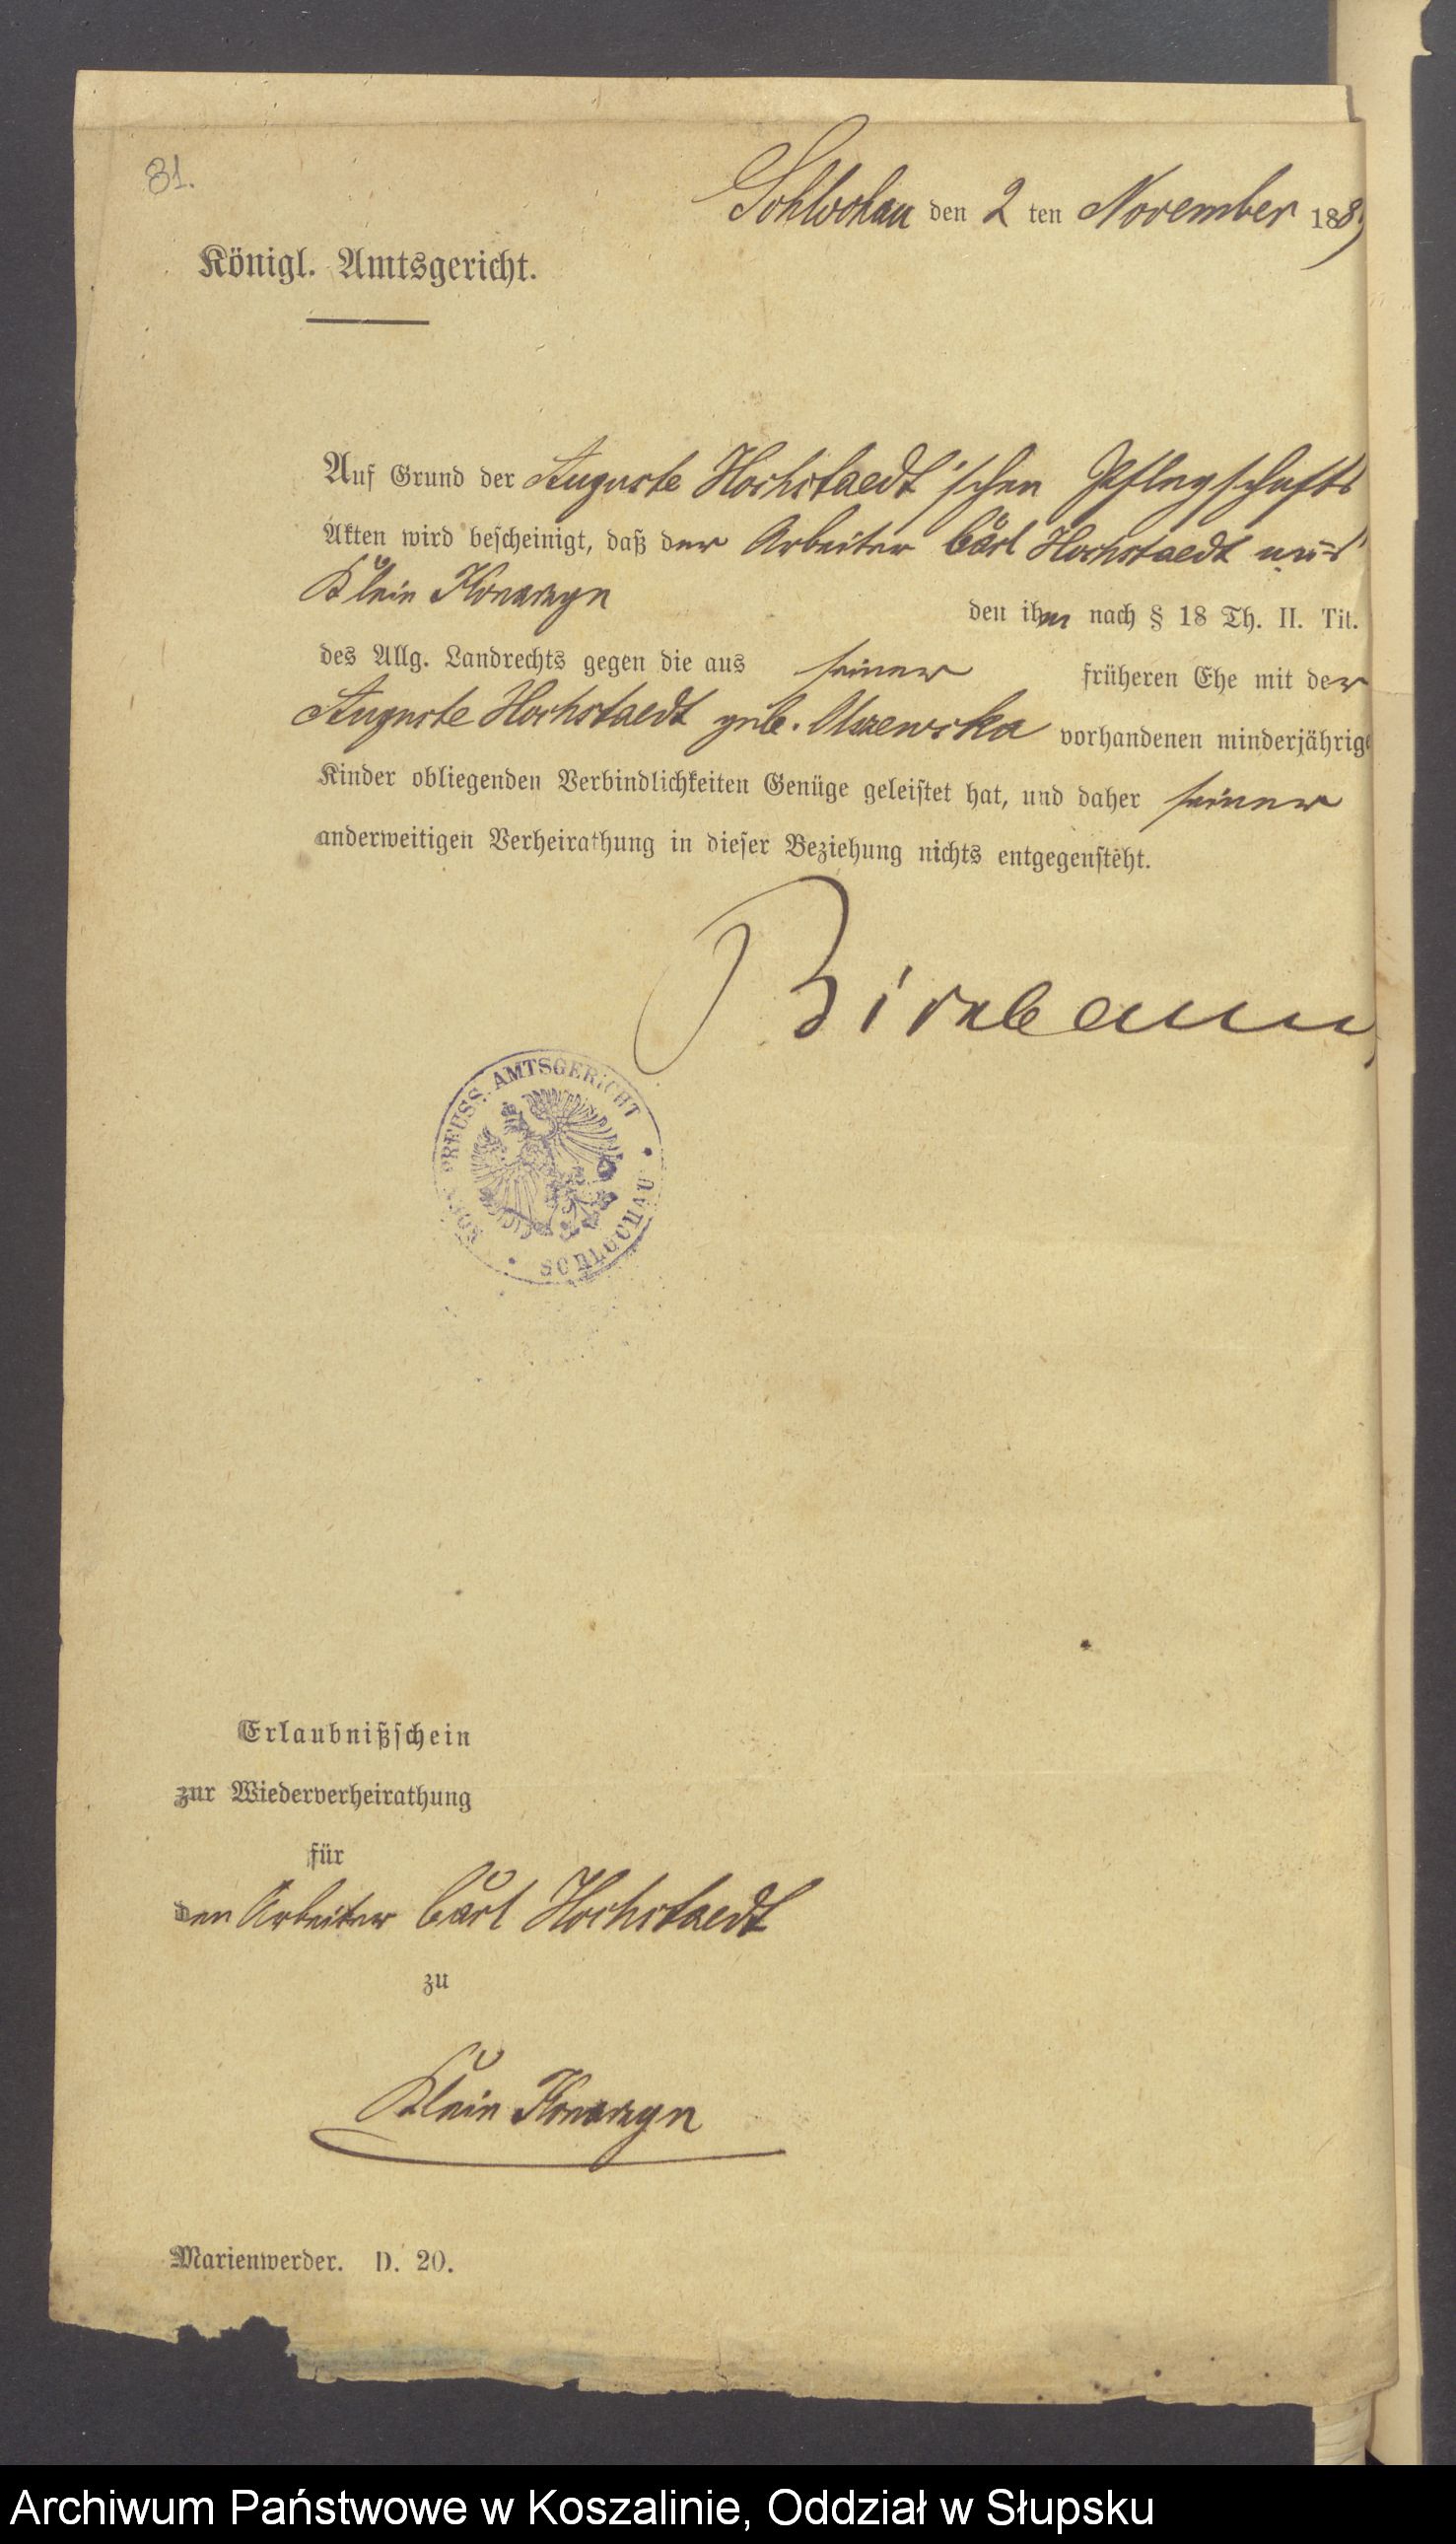 31.
Schlochau den 2 ten November 188
Königl. Amtsgericht.
Auf Grund der Auguste Hochstaedt'schen Pflegschafts
Akten wird bescheinigt, daß der Arbeiter Carl Hochstaedt aus
Klein Konarzyn den ihm nach § 18 Th. II. Tit.
des Allg. Landrechts gegen die aus seiner früheren Ehe mit der
Auguste Hochstaedt geb. vorhandenen minderjährige
Kinder obliegenden Verbindlichkeiten Genüge geleistet hat, und daher seiner
anderweitigen Verheirathung in dieser Beziehung nichts entgegensteht.
Birnbaum
KÖN. PREUSS. AMTSGERICHT
SCHLOCHAU
Erlaubnißschein
zur Wiederverheirathung
für
den Arbeiter Carl Hochstaedt
zu
Klein Konarzyn
Marienwerder. D. 20.
Archiwum Państwowe w Koszalinie, Oddział w Słupsku